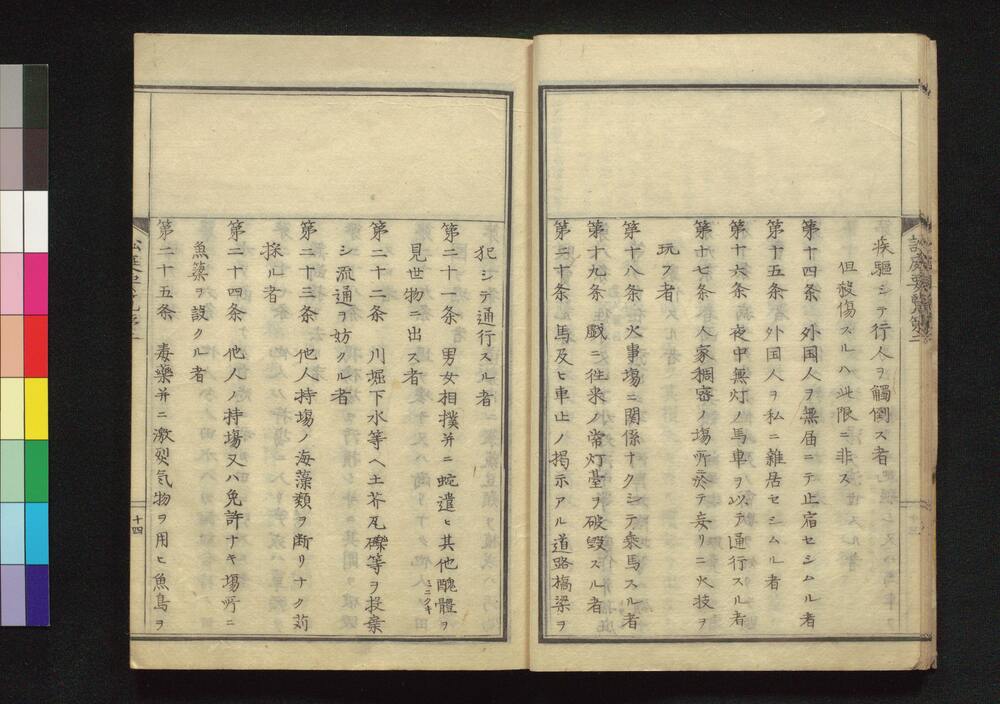 疾驅シテ行人ヲ觸倒ス者
但殺傷スルハ此限ニ非ス
第十四条 外国人ヲ無届ニテ止宿セシムル者
第十五条 外国人ヲ私ニ雜居セシムル者
第十六条 夜中無灯ノ馬車ヲ以テ通行スル者
第十七条 人家稠密ノ場所ニ於テ妄リニ火技ヲ
玩フ者
第十八条 火事場ニ関係ナクシテ乘馬スル者
第十九条 戯ニ往来ノ常灯臺ヲ破毀スル者
第二十条 馬及ヒ車止ノ掲示アル道路橋梁ヲ
犯シテ通行スル者
第二十一条 男女相撲并ニ蛇遣ヒ其他醜體ヲ
ミニクキ
見世物ニ出ス者
第二十二条 川堀下水等ヘ土芥瓦礫等ヲ投棄
シ流通ヲ妨クル者
第二十三条 他人持場ノ海藻類ヲ断リナク苅
採ル者
第二十四条 他人ノ持場又ハ免許ナキ場所ニ
魚簗ヲ設クル者
第二十五条 毒藥并ニ激烈気物ヲ用ヒ魚鳥ヲ
十四